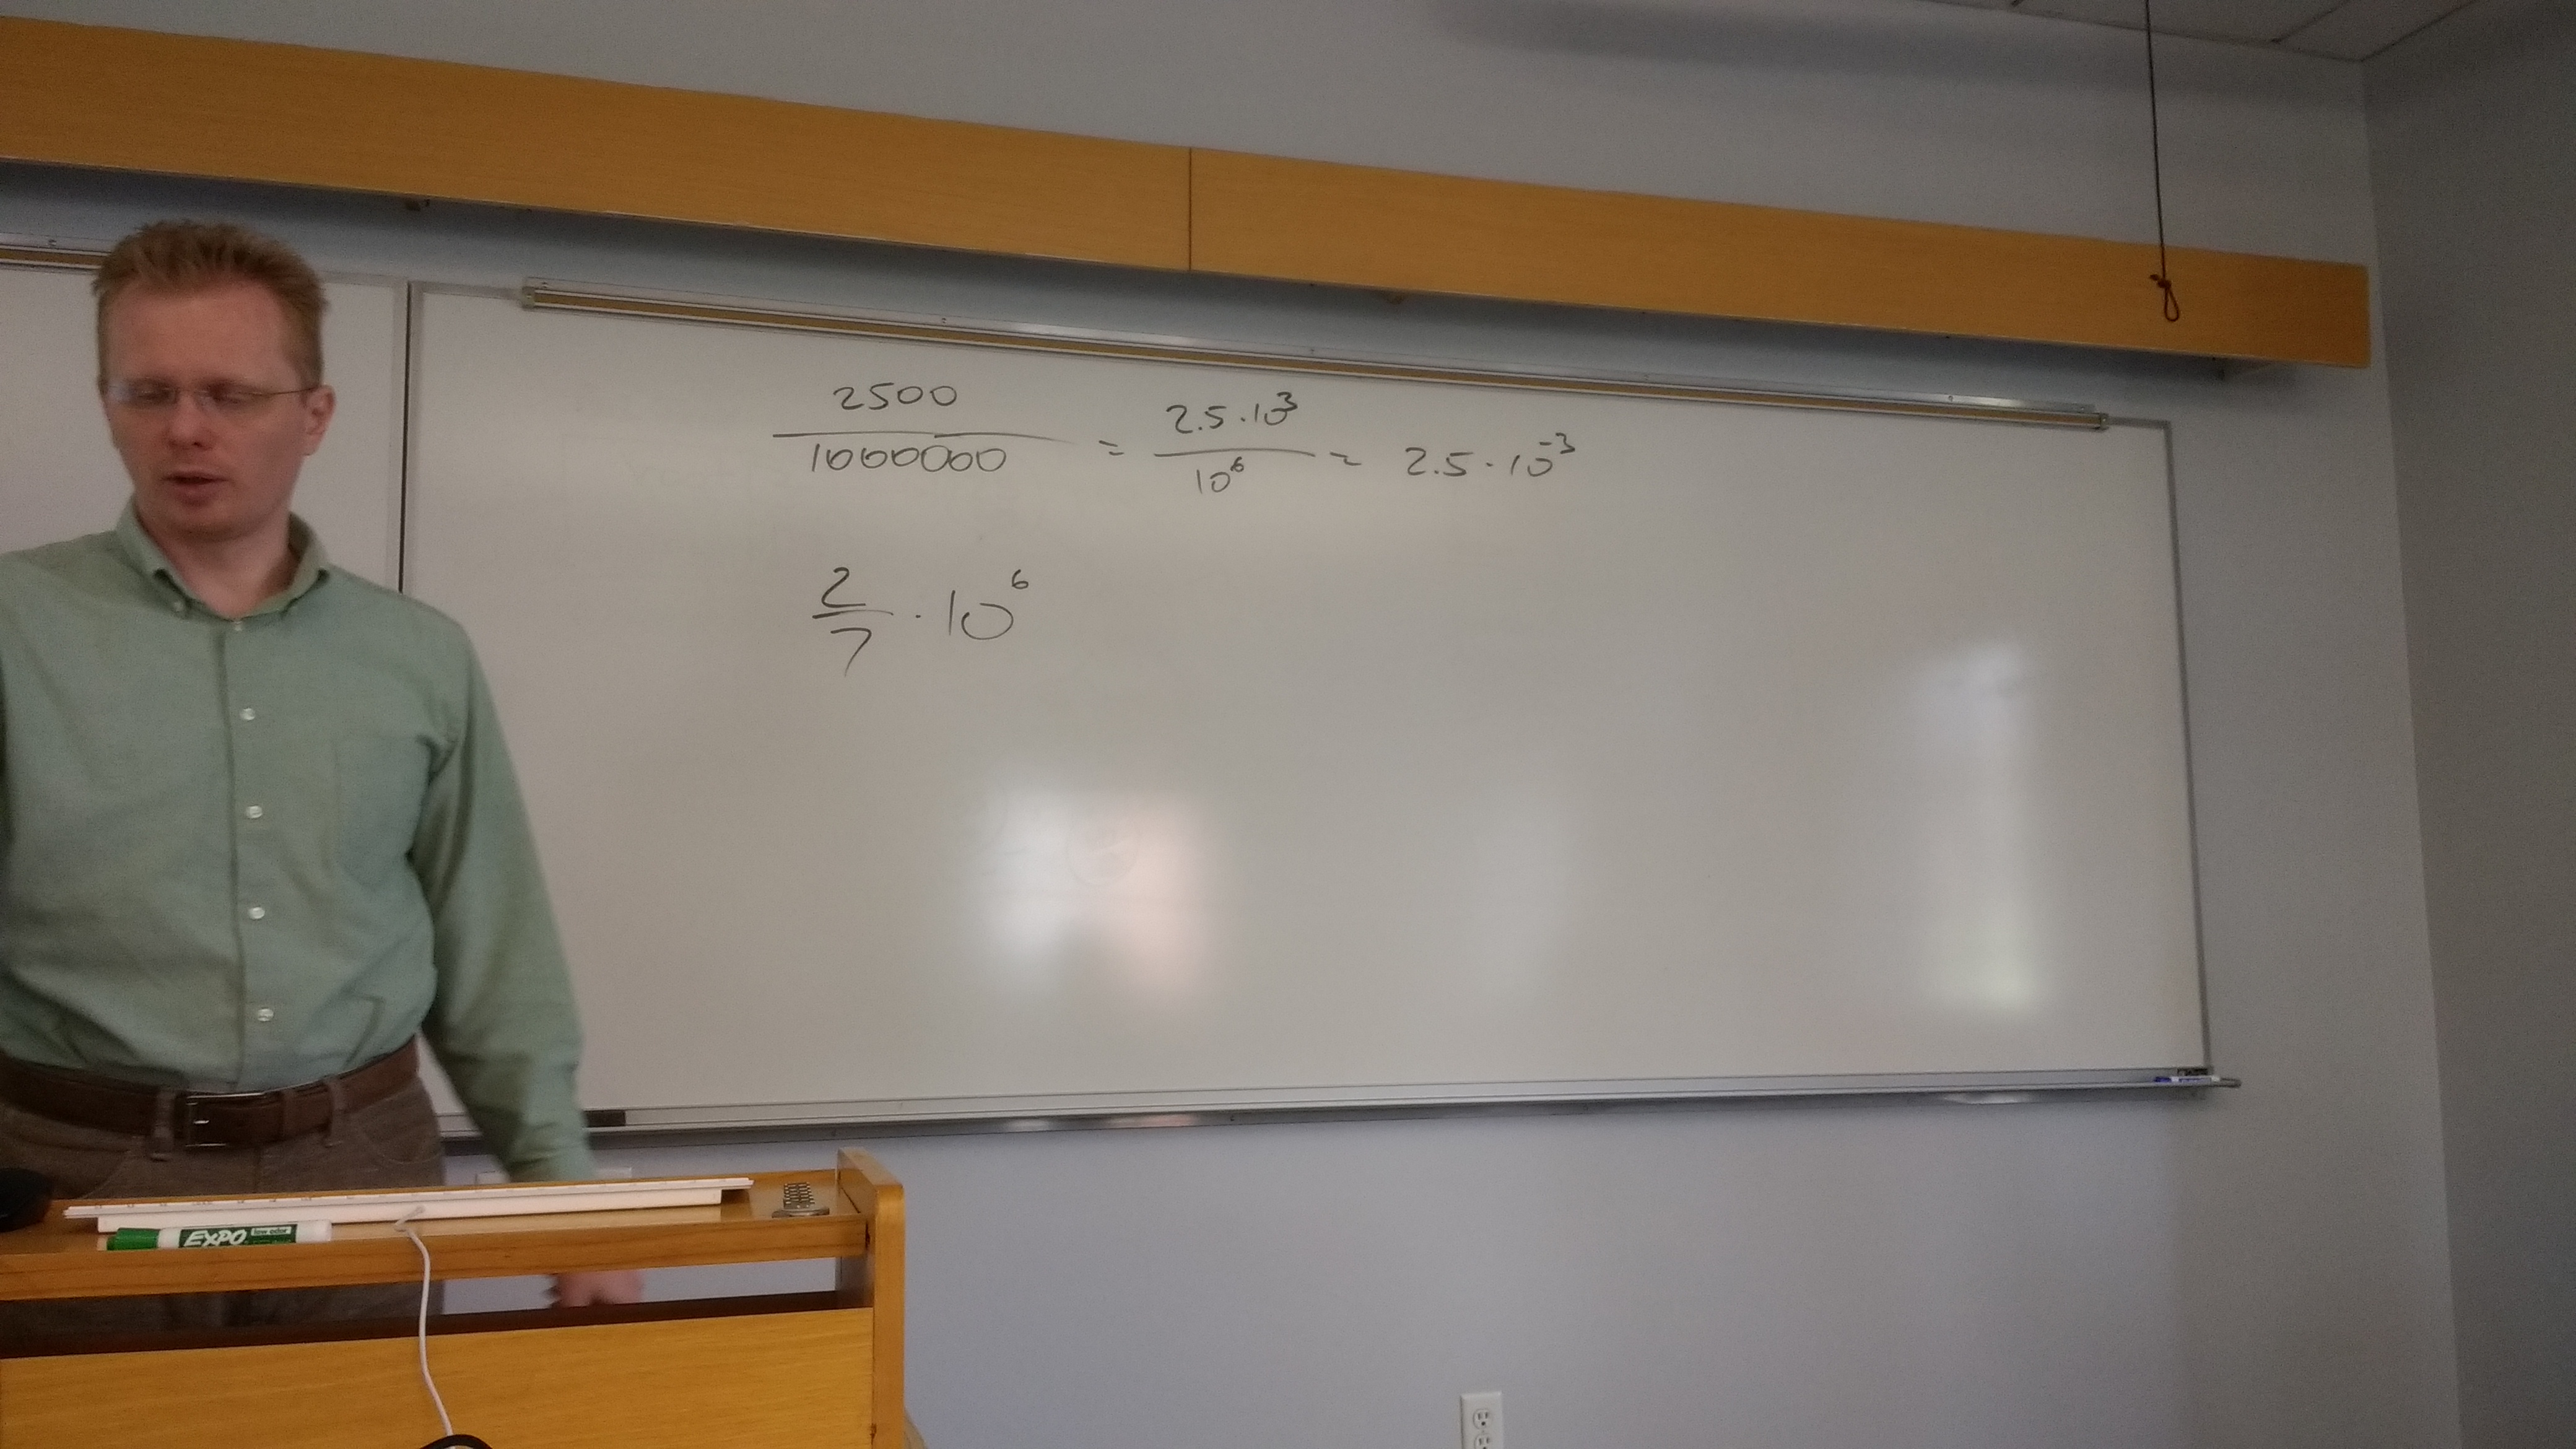 2500 / 1000000 = 2.5 · 10³ / 10⁶ = 2.5 · 10⁻³
2/7 · 10⁶
EXPO low odor